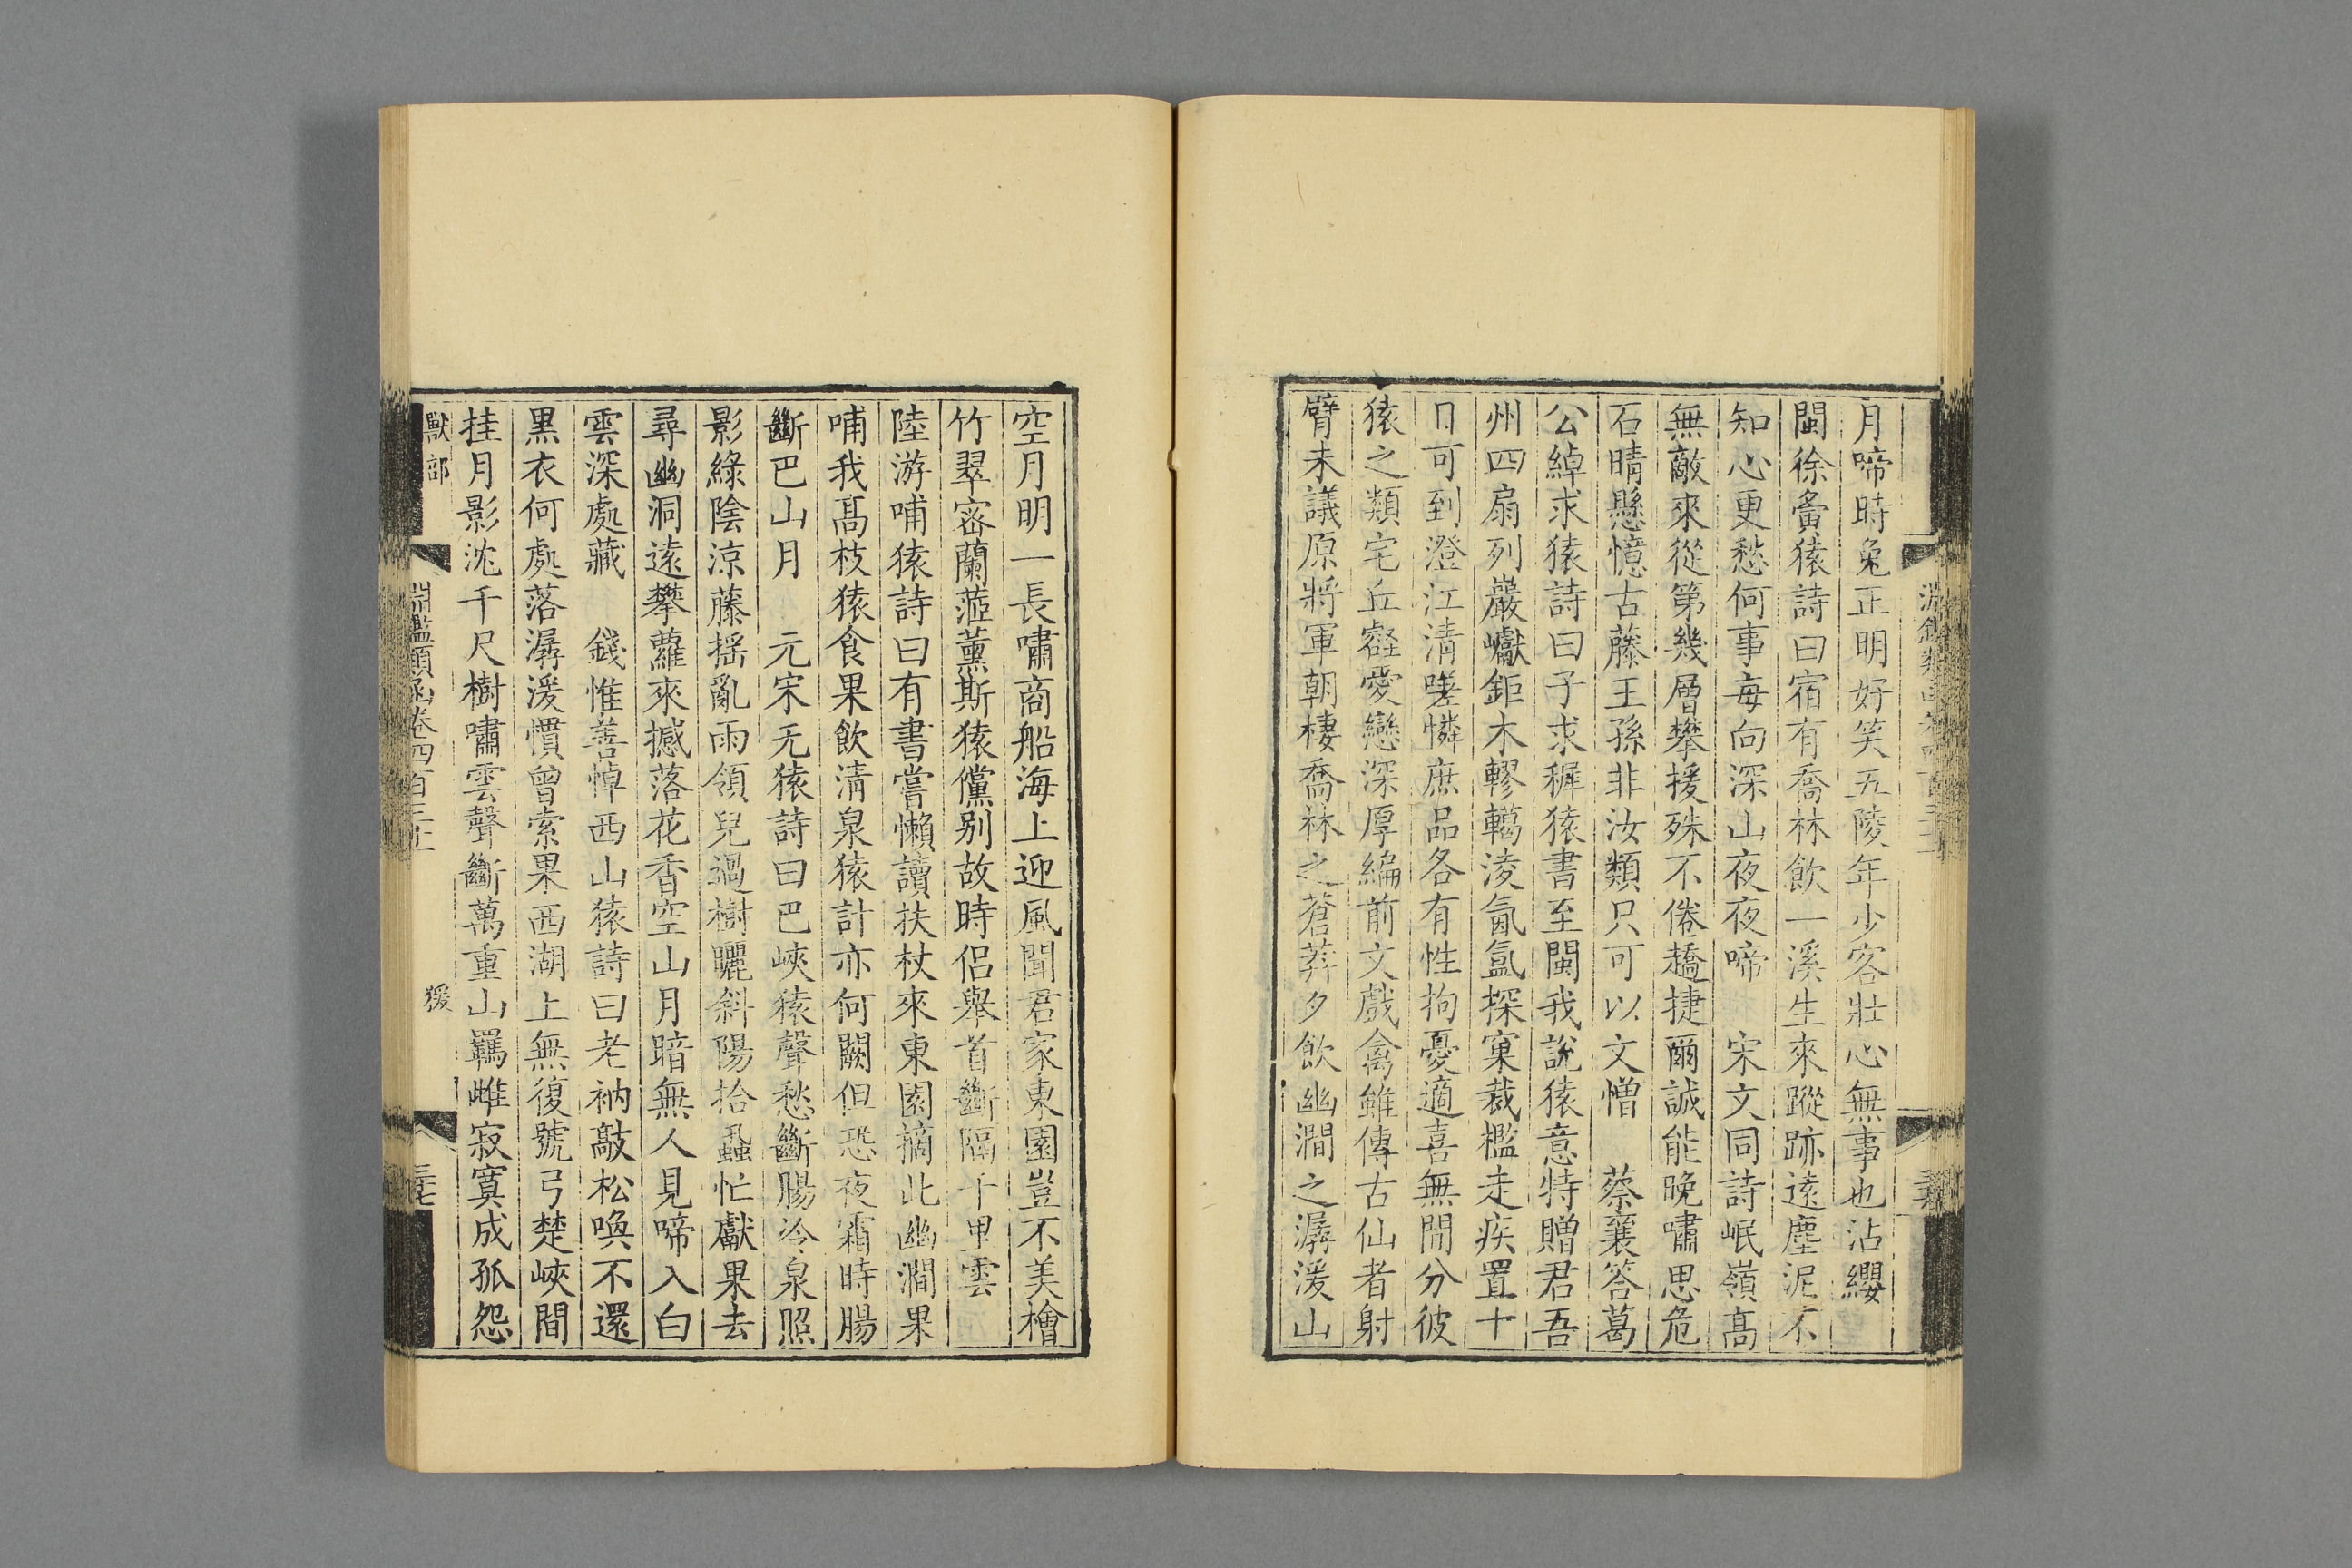 月啼時兔正明好笑五陵年少客壯心無事也沾纓
閩徐夤猿詩曰宿有喬林飲一溪生來蹤跡遠塵泥不
知心更愁何事每向深山夜夜啼　宋文同詩岷嶺高
無敵來從第幾層攀援殊不倦趫捷爾誠能晚嘯思危
石晴懸憶古藤王孫非汝類只可以文憎　蔡襄答葛
公綽求猿詩曰子求穉猿書至閩我說猿意特贈君吾
州四扇列巖巘鉅木轇轕淩氤氳探窠裁檻走疾置十
日可到澄江濆嗟憐庶品各有性拘憂適喜無閒分彼
猿之類宅丘壑愛戀深厚編前文戲禽雖傳古仙者射
臂未議原將軍朝棲喬林之蒼莽夕飲幽澗之潺湲山
空月明一長嘯商船海上迎風聞君家東園豈不美檜
竹翠密蘭蒞薰斯猿儻别故時侶舉首斷隔千里雲
陸游哺猿詩曰有書嘗懶讀扶杖來東園摘此幽澗果
哺我高枝猿食果飲清泉猿計亦何闕但恐夜霜時腸
斷巴山月　元宋无猿詩曰巴峽猿聲愁斷腸冷泉照
影綠陰涼藤摇亂雨領兒過樹曬斜陽拾蝨忙獻果去
尋幽洞遠攀蘿來撼落花香空山月暗無人見啼入白
雲深處藏　錢惟善悼西山猿詩曰老衲敲松喚不還
黒衣何處落潺湲慣曾索果西湖上無復號弓楚峽間
挂月影沈千尺樹嘯雲聲斷萬重山羈雌寂寞成孤怨
獸部
淵鑑類函卷四百三十
猨
三七